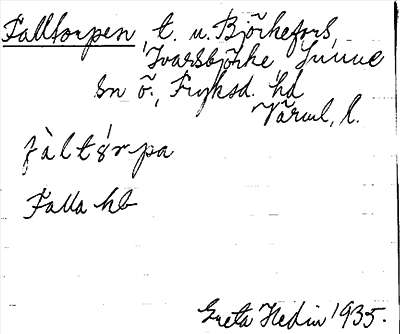 Falltorpen, t. u. Björkefors,
Ivarsbjörke Sunne
sn ö., Fryksd. hd
Värml, l.
fàltó̀rpa
Falla hb
Greta Hedin 1935.